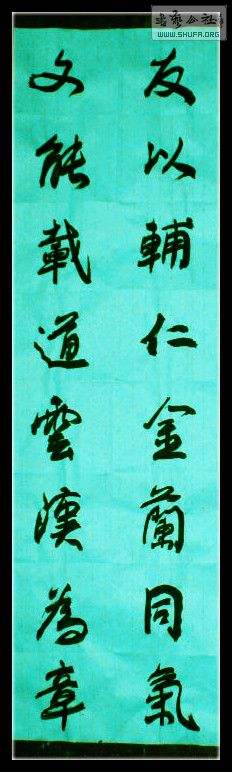 友以輔仁金蘭同氣
文能載道雲漢為章
書藝公社
WWW.SHUFA.ORG